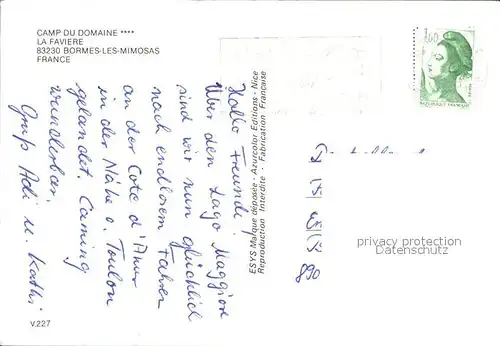 CAMP DU DOMAINE ****
LA FAVIERE
83230 BORMES-LES-MIMOSAS
FRANCE
Hallo Freunde!
Über den Lago Maggiore
sind wir nun glücklich
nach endlosem Fahren
an der Cote d'Azur
in der Nähe v. Toulon
gelandet. Caming
wunderbar.
Gruß Adi u. Kathi
V.227
ESYS Marque déposée - Azurcolor Editions - Nice
Reproduction Interdite - Fabrication Française
REPUBLIQUE FRANÇAISE
privacy protection
Datenschutz
890